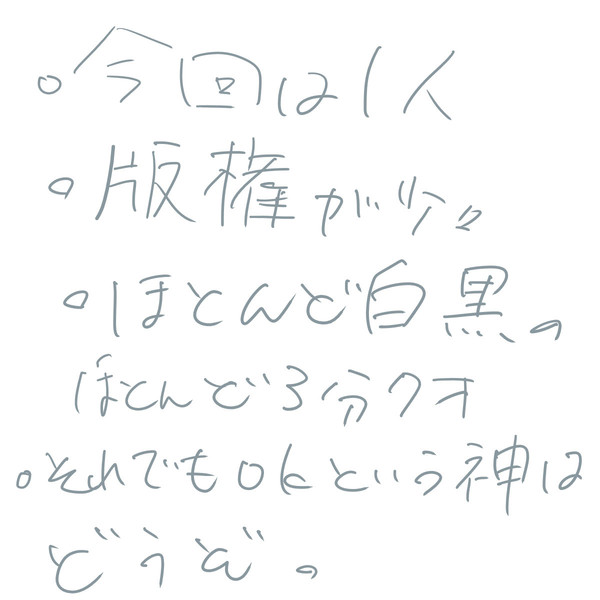 。今回は1人
。版権が少々
。ほとんど白黒。
ほとんど3分クオ
。それでもokという神は
どうぞ。